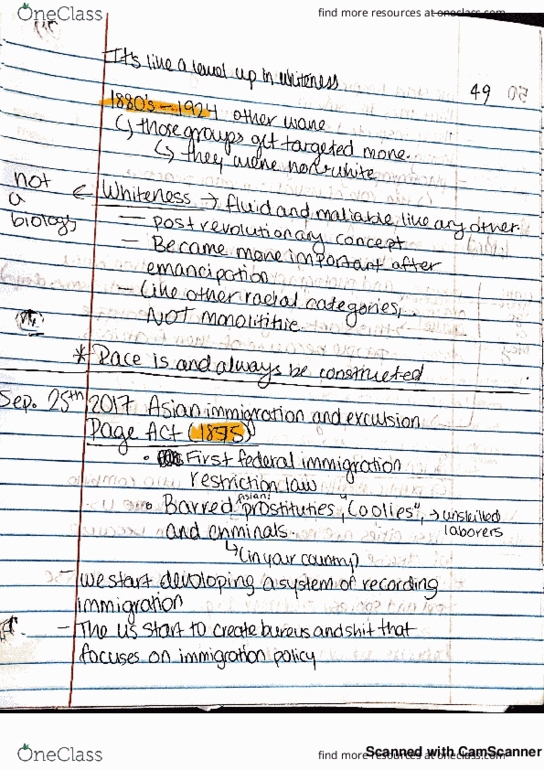 OneClass
find more resources at oneclass.com
It's like a level up in whiteness
49
50
1880's - 1924 other wave
↳ those groups get targeted more.
↳ they were nonwhite
not a biology ← Whiteness → fluid and maliable like any other.
— post revolutionary concept
— Became more important after
emancipation
— Like other racial categories,
NOT monolithic
* Race is and always be constructed
Sep. 25th 2017 Asian immigration and exculsion
Page Act (1875)
• First federal immigration
restriction law
• Barred (Asian) prostituties, "Coolies", → unskilled laborers
and criminals.
↳ (in your country)
— we start developing a system of recording
immigration
— The US start to create bureus and shit that
focuses on immigration policy
OneClass
find more resources at oneclass.com
Scanned with CamScanner